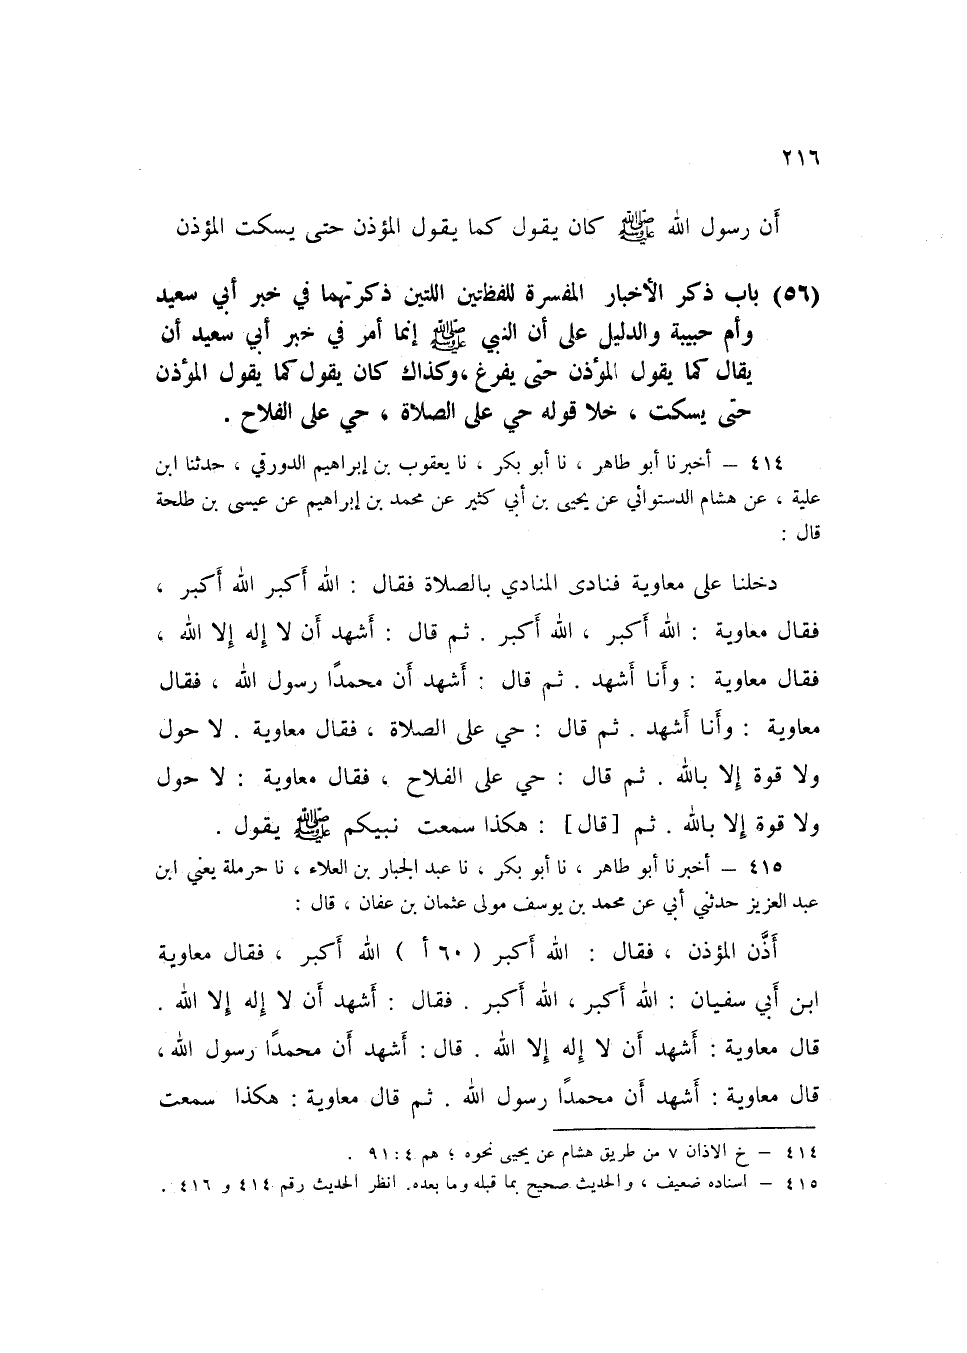 ٢١٦
أَن رسول الله ﷺ كان يقول كما يقول المؤذن حتى يسكت المؤذن
(٥٦) باب ذكر الأخبار المفسرة للفظتين اللتين ذكرتهما في خبر أبي سعيد
وأم حبيبة والدليل على أن النبي ﷺ إنما أمر في خبر أبي سعيد أن
يقال كما يقول المؤذن حتى يفرغ ، وكذاك كان يقول كما يقول المؤذن
حتى يسكت ، خلا قوله حي على الصلاة ، حي على الفلاح .
٤١٤ – أخبرنا أبو طاهر ، نا أبو بكر ، نا يعقوب بن إبراهيم الدورقي ، حدثنا ابن
علية ، عن هشام الدستوائي عن يحيى بن أبي كثير عن محمد بن إبراهيم عن عيسى بن طلحة
قال :
دخلنا على معاوية فنادى المنادي بالصلاة فقال : الله أَكبر الله أَكبر ،
فقال معاوية : الله أَكبر ، الله أَكبر . ثم قال : أَشهد أَن لا إله إلا الله ،
فقال معاوية : وأَنا أَشهد . ثم قال : أَشهد أَن محمدًا رسول الله ، فقال
معاوية : وأَنا أَشهد . ثم قال : حي على الصلاة ، فقال معاوية . لا حول
ولا قوة إلا بالله . ثم قال : حي على الفلاح ، فقال معاوية : لا حول
ولا قوة إلا بالله . ثم [قال] : هكذا سمعت نبيكم ﷺ يقول .
٤١٥ – أخبرنا أبو طاهر ، نا أبو بكر ، نا عبد الجبار بن العلاء ، نا حرملة يعني ابن
عبد العزيز حدثني أبي عن محمد بن يوسف مولى عثمان بن عفان ، قال :
أَذَّن المؤذن ، فقال : الله أَكبر ( ٦٠ أ ) الله أَكبر ، فقال معاوية
ابن أَبي سفيان : الله أَكبر ، الله أَكبر . فقال : أَشهد أَن لا إله إلا الله .
قال معاوية : أَشهد أَن لا إله إلا الله . قال : أَشهد أَن محمدًا رسول الله ،
قال معاوية : أَشهد أَن محمدًا رسول الله . ثم قال معاوية : هكذا سمعت
٤١٤ – خ الاذان ٧ من طريق هشام عن يحيى نحوه ؛ هم ٤ : ٩١ .
٤١٥ – اسناده ضعيف ، والحديث صحيح بما قبله وما بعده. انظر الحديث رقم ٤١٤ و ٤١٦ .